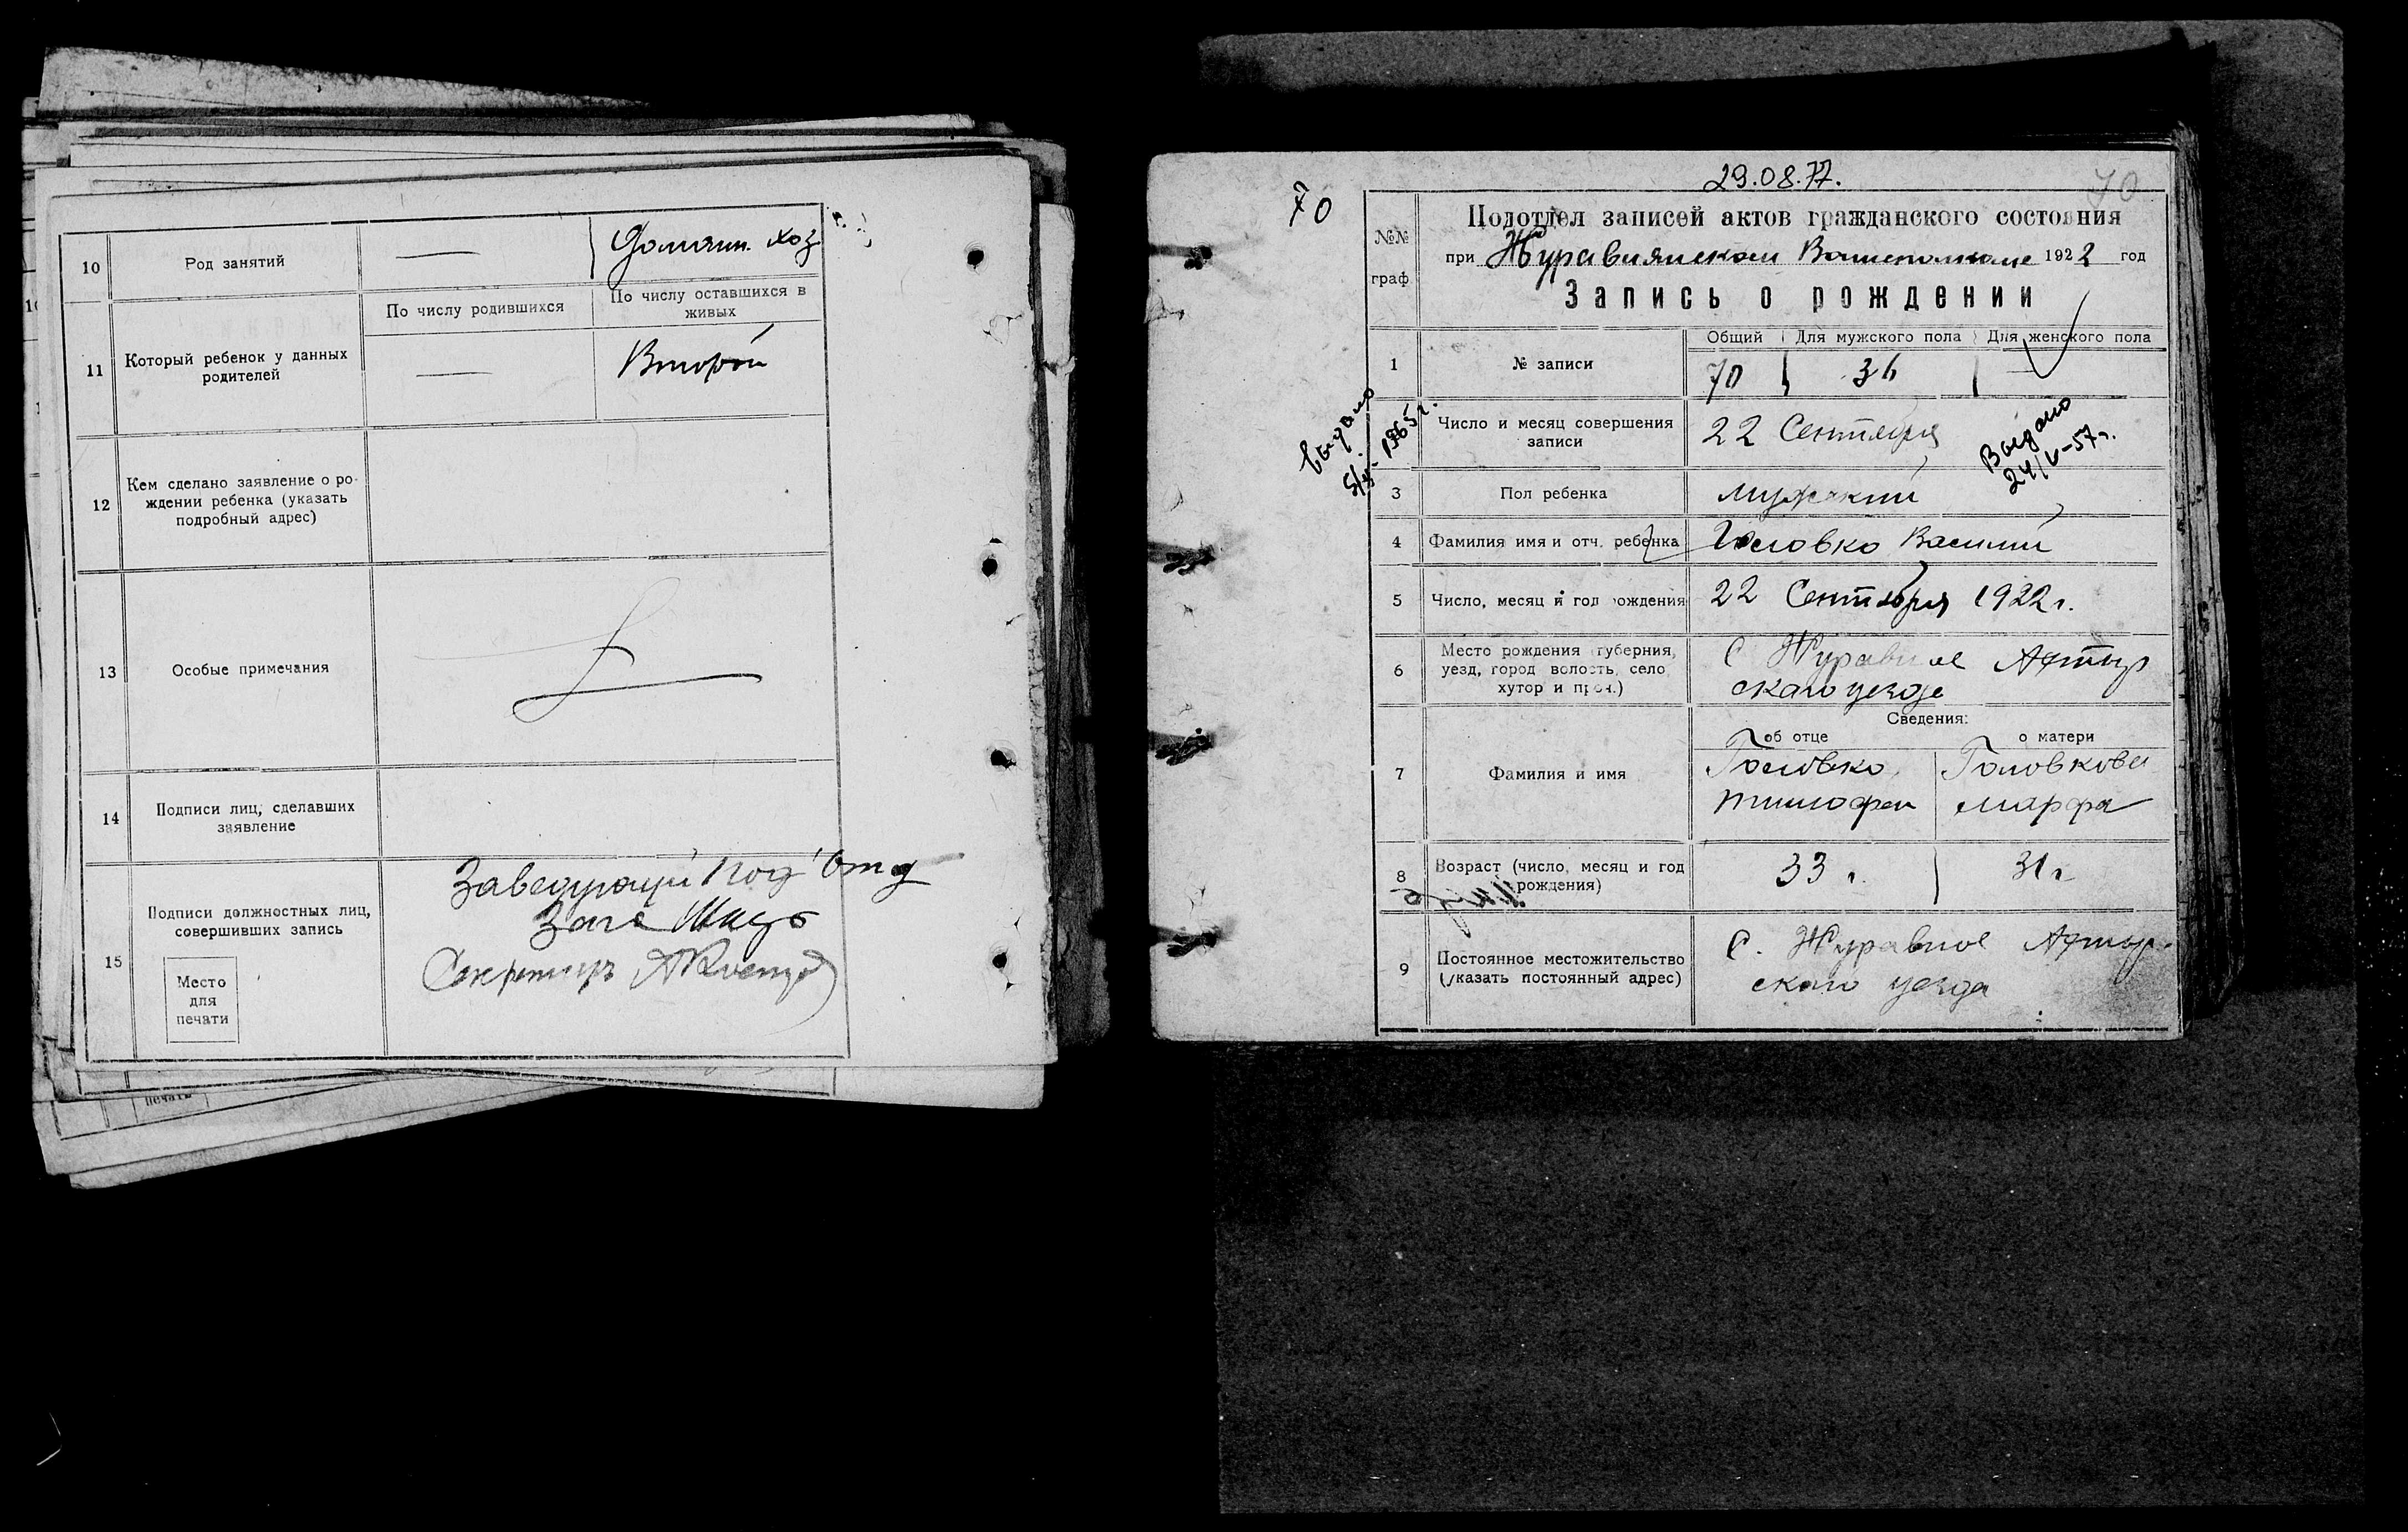 10
Род занятий
—
Домашн. хоз
11
Который ребенок у данных
родителей
По числу родившихся
По числу оставшихся в
живых
—
Второй
12
Кем сделано заявление о ро-
ждении ребенка (указать
подробный адрес)
13
Особые примечания
14
Подписи лиц, сделавших
заявление
15
Подписи должностных лиц,
совершивших запись
Место
для
печати
Заведующий Под'отд
Секретарь
печать
29.08.77.
70
70
№№
граф.
Подотдел записей актов гражданского состояния
при Журавнянском Волисполкоме 1922 год
Запись о рождении
1
№ записи
Общий
Для мужского пола
Для женского пола
70
36
Число и месяц совершения
записи
22 Сентября
выдано
1965 г.
Выдано
24/V-57г.
3
Пол ребенка
мужский
4
Фамилия имя и отч. ребенка
Головко Василий
5
Число, месяц и год рождения
22 Сентября 1922 г.
6
Место рождения (губерния,
уезд, город волость, село
хутор и проч.)
С Журавное Ахтыр
скаго уезда
Сведения:
об отце
о матери
7
Фамилия и имя
Головко
Тимофей
Головкова
Марфа
8
Возраст (число, месяц и год
рождения)
33 г.
31 г
9
Постоянное местожительство
(указать постоянный адрес)
С. Журавное Ахтыр-
скаго уезда